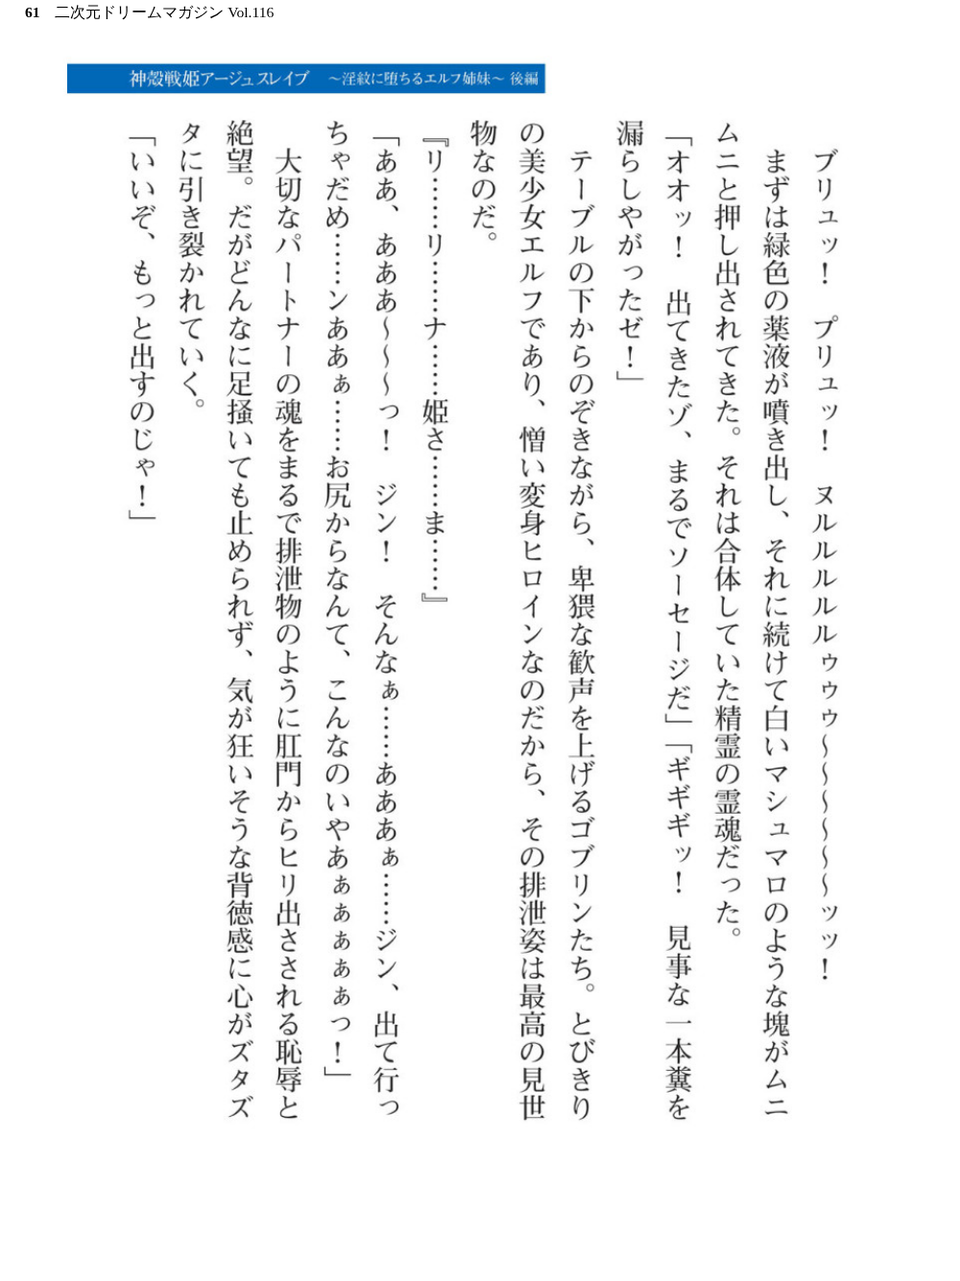 61 二次元ドリームマガジン Vol.116
神殻戦姫アージュスレイブ　～淫紋に堕ちるエルフ姉妹～ 後編
ブリュッ！　プリュッ！　ヌルルルルルゥゥゥ～～～～～～ッッ！
まずは緑色の薬液が噴き出し、それに続けて白いマシュマロのような塊がムニ
ムニと押し出されてきた。それは合体していた精霊の霊魂だった。
「オオッ！　出てきたゾ、まるでソーセージだ」「ギギギッ！　見事な一本糞を
漏らしやがったゼ！」
テーブルの下からのぞきながら、卑猥な歓声を上げるゴブリンたち。とびきり
の美少女エルフであり、憎い変身ヒロインなのだから、その排泄姿は最高の見世
物なのだ。
『リ……リ……ナ……姫さ……ま……』
「ああ、あああ～～～っ！　ジン！　そんなぁ……あああぁ……ジン、出て行っ
ちゃだめ……ンああぁ……お尻からなんて、こんなのいやあぁぁぁぁぁっ！」
大切なパートナーの魂をまるで排泄物のように肛門からヒリ出さされる恥辱と
絶望。だがどんなに足掻いても止められず、気が狂いそうな背徳感に心がズタズ
タに引き裂かれていく。
「いいぞ、もっと出すのじゃ！」